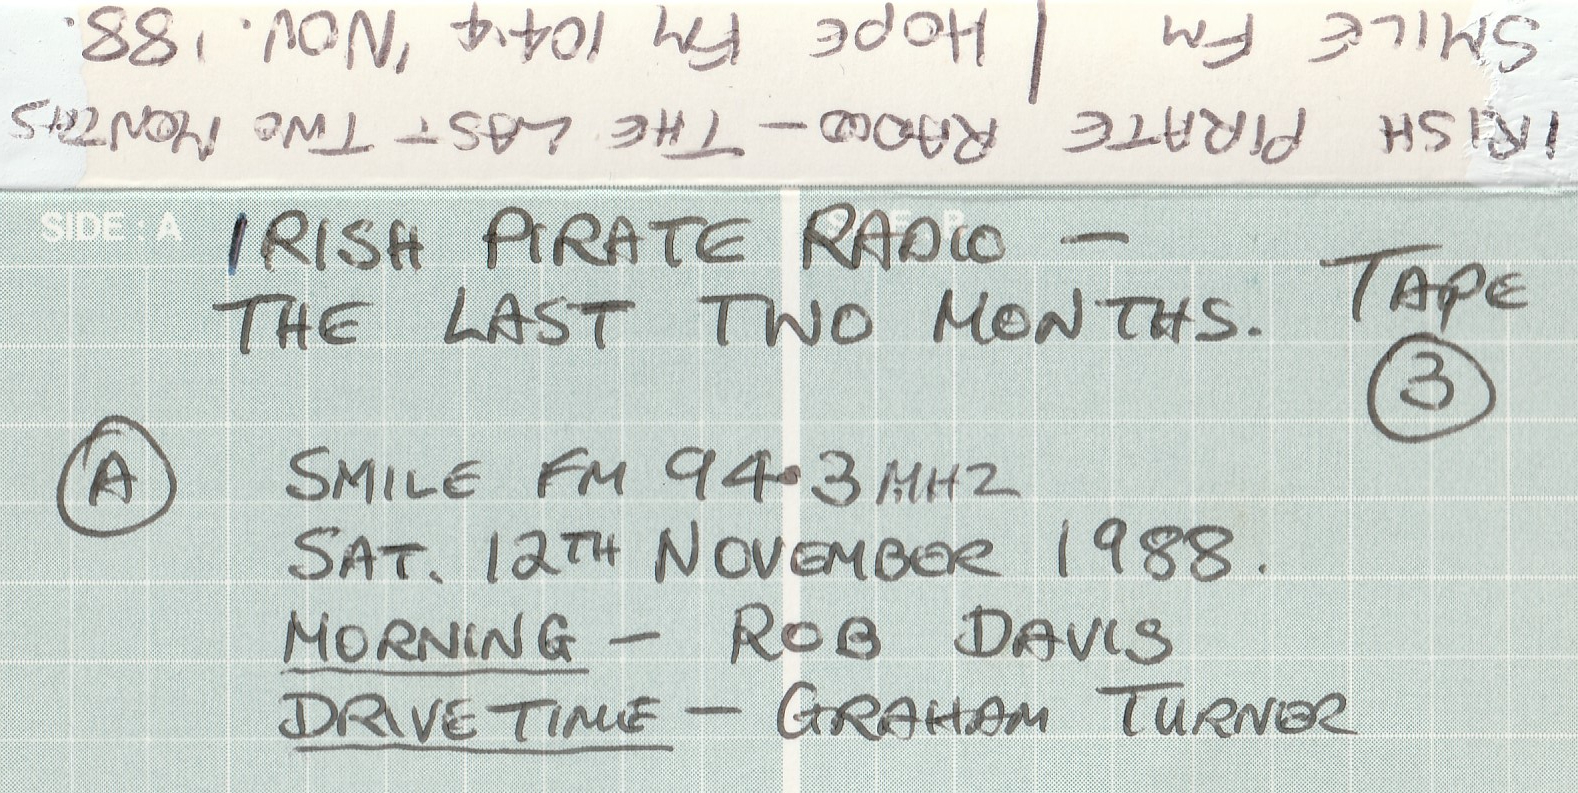 IRISH PIRATE RADIO - THE LAST TWO MONTHS
SMILE FM / HOPE FM 104.4, NOV. '88.
SIDE : A
IRISH PIRATE RADIO -
THE LAST TWO MONTHS.
TAPE
3
A
SMILE FM 94.3 MHZ
SAT. 12TH NOVEMBER 1988.
MORNING - ROB DAVIS
DRIVETIME - GRAHAM TURNER